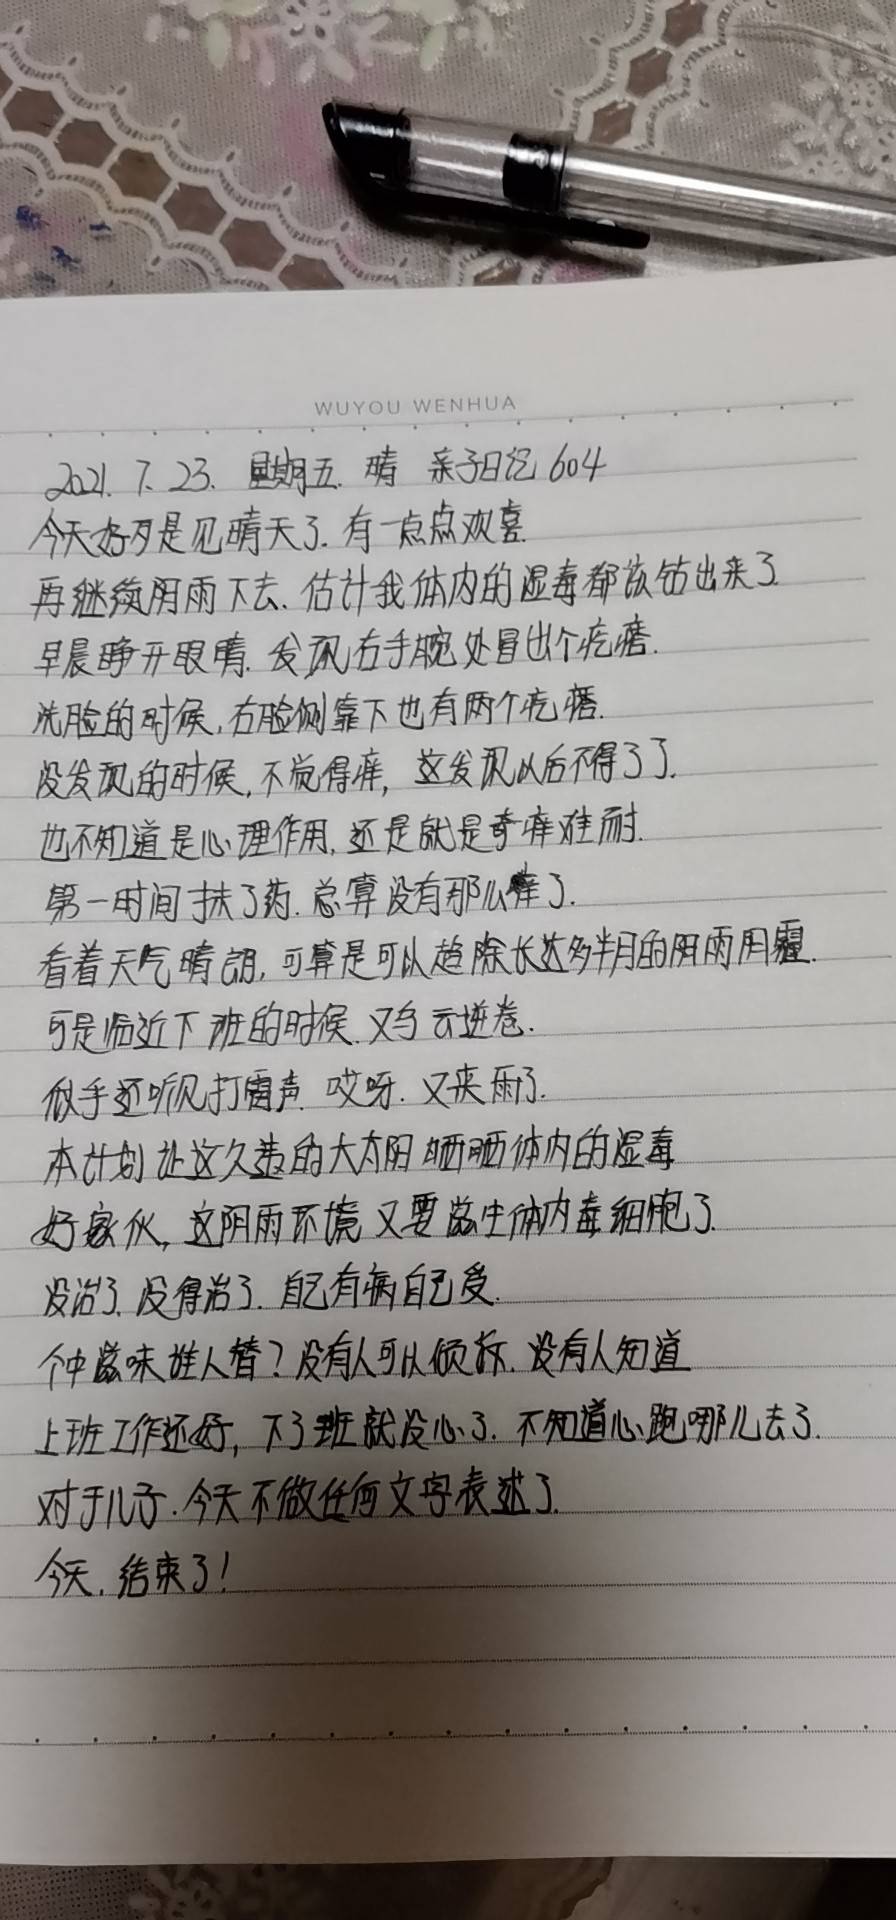 WUYOU WENHUA
2021. 7. 23. 星期五. 晴 亲子日记 604
今天好歹是见晴天了. 有一点点欢喜.
再继续阴雨下去. 估计我体内的湿毒都该钻出来了
早晨睁开眼睛. 发现右手腕处冒出个疙瘩.
洗脸的时候, 右脸侧靠下也有两个疙瘩.
没发现的时候, 不觉得痒, 这发现以后不得了了.
也不知道是心理作用, 还是就是奇痒难耐.
第一时间抹了药. 总算没有那么痒了.
看着天气晴朗, 可算是可以趋除长达多半月的阴雨阴霾.
可是临近下班的时候. 又乌云逆卷.
似乎还听见打雷声. 哎呀. 又来雨了.
本计划让这久违的大太阳晒晒体内的湿毒
好家伙, 这阴雨环境又要滋生体内毒细胞了.
没治了. 没得治了. 自己有病自己受.
个中滋味谁人替? 没有人可以倾拆. 没有人知道
上班工作还好, 下了班就没心了. 不知道心跑哪儿去了.
对于儿子. 今天不做任何文字表述了.
今天. 结束了!